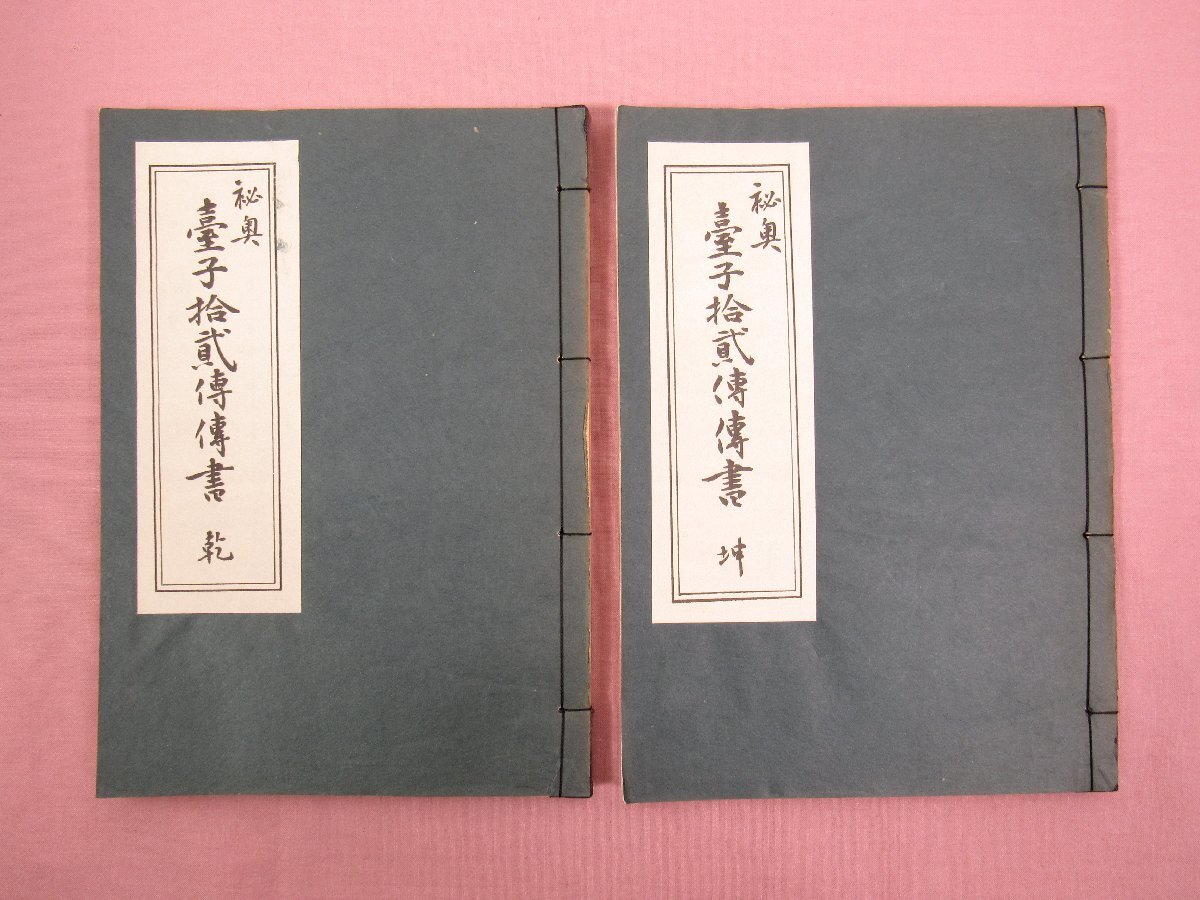 祕奥
臺子拾貳傳傳書 乾
祕奥
臺子拾貳傳傳書 坤